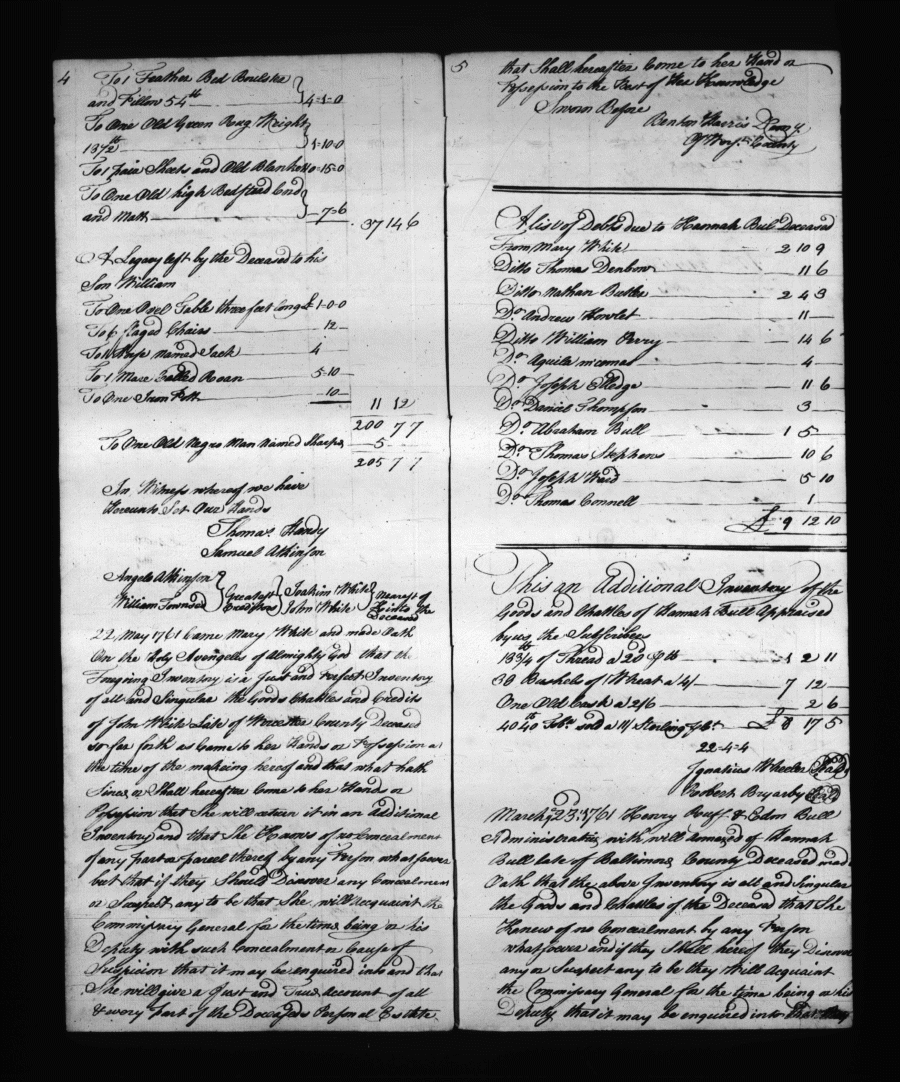 4
To 1 Feather Bed Boulster
and Pillow 54 th 4-1-0
To One Old Green Rug Weight
13 1/2 th 1-10-0
To 1 pair Sheets and Old Blanket 0-15-0
To One Old high Bedstead Cord
and Matt 7-6
37 14 6
A Legacy left by the Deceased to his
Son William
To One Ovel Table three feet long £1-0-0
To 6 Flaged Chairs 12
To 1 Horse named Jack 4
To 1 Mare Called Roan 5-10
To One Iron Pott 10
11 12
200 7 7
To One Old Negro Man Named Sharper 5
205 7 7
In Witness whereof we have
Accounts Set Our Hands
Thomas Hardy
Samuel Atkinson
Angelo Atkinson
William Townsend
Greatest
Creditors
Joakim White
John White
Nearest of
Kin to the
Deceased
22 May 1761 Came Mary White and made Oath
On the Holy Avengeles of Almighty God that the
Foregoing Inventory is a Just and Perfect Inventory
of all and Singular the Goods Chattles and Credits
of John White Late of Worcester County Deceased
so far forth as Came to her Hands or Possession at
the time of the makeing hereof and that what hath
Since or Shall hereafter Come to her Hands or
Possession that She will return it in an Additional
Inventory and that She Knows of no Concealment
of any part or parcel thereof by any Person whatsoever
but that if they Should Discover any Concealment
or Suspect any to be that She will acquaint the
Commissary General for the time being or his
Deputy with such Concealment or Cause of
Suspicion that it may be enquired into and that
She will give a Just and True Account of all
& every part of the Deceaseds Personal Estate
5
that Shall hereafter Come to her Hand or
Possession to the Best of Her Knowledge
Sworn Before
Benton Harris D Com y
Of Wor. County
A list of Debts due to Hannah Bull Deceased
From Mary White 2 10 9
Ditto Thomas Denbow 11 6
Ditto Nathan Butler 2 4 3
Do. Andrew Howlet 11
Ditto William Perry 14 6
Do. Aquila 4
Do. Joseph Elledge 11 6
Do. Daniel Thompson 3
Do. Abraham Bull 1 5
Do. Thomas Stephens 10 6
Do. Joseph Ward 5 10
Do. Thomas Connell 1
£ 9 12 10
This an Additional Inventory of the
Goods and Chattles of Hannah Bull Appraised
by us the Subscribers
13 3/4 th of Thread a 20 p th 1 2 11
38 Bushels of Wheat a 4/ 7 12
One Old Cask a 2/6 2 6
£ 8 17 5
4040 th Tobo. sold a 11/ Sterling
22-4-4
Ignatius Wheeler Seal
Robert Bryarly Seal
March 23 1761 Henry Ruff & Edon Bull
Administrators with will annexed of Hannah
Bull late of Baltimore County Deceased made
Oath that the above Inventory is all and Singular
the Goods and Chattles of the Deceased that She
Knew of no Concealment by any Person
whatsoever and if they Shall hereof they Discover
any or Suspect any to be they Will Acquaint
the Commissary General for the time being or his
Deputy that it may be enquired into that they